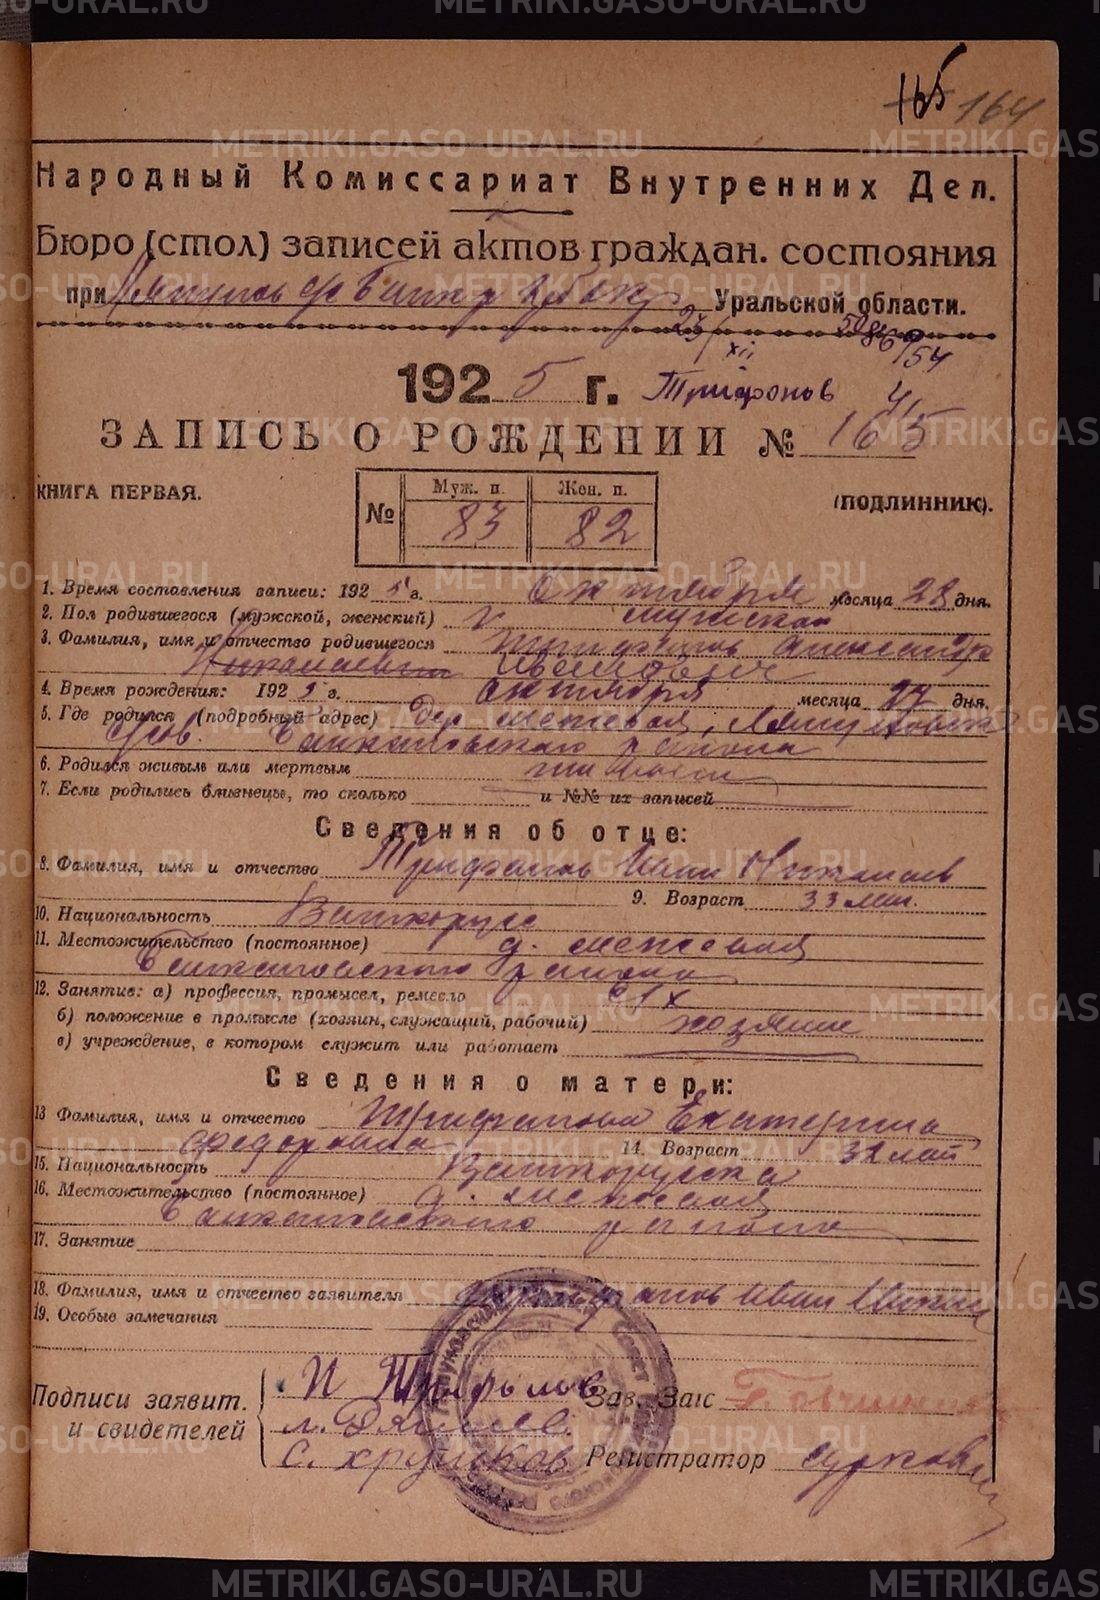 165 164
Народный Комиссариат Внутренних Дел.
Бюро (стол) записей актов граждан. состояния
при Уральской области.
1925 г. Трифонов
ЗАПИСЬ О РОЖДЕНИИ № 165
КНИГА ПЕРВАЯ.
(ПОДЛИННИК).
№ Муж. п. Жен. п.
83 82
1. Время составления записи: 1925 г. Октября месяца 28 дня.
2. Пол родившегося (мужской, женский) мужской
3. Фамилия, имя и отчество родившегося Трифанов Александр
Николаевич Иванович
4. Время рождения: 1925 г. октября месяца 27 дня.
5. Где родился (подробный адрес) Дер. межевая,
района
6. Родился живым или мертвым живым
7. Если родились близнецы, то сколько и №№ их записей
Сведения об отце:
8. Фамилия, имя и отчество Трифанов Иван Николаев
9. Возраст 33 лет.
10. Национальность Великорусс
11. Местожительство (постоянное) д. межевая
района
12. Занятие: а) профессия, промысел, ремесло с/х
б) положение в промысле (хозяин, служащий, рабочий) хозяин
в) учреждение, в котором служит или работает
Сведения о матери:
13 Фамилия, имя и отчество Трифанова Екатерина
Федоровна 14. Возраст 32 лет
15. Национальность Великорусска
16. Местожительство (постоянное) д. межевая
района
17. Занятие
18. Фамилия, имя и отчество заявителя Трифанов Иван
19. Особые замечания
Подписи заявит. и свидетелей
И Трифонов
Зав. Загс
С. Хрульков
Регистратор
METRIKI.GASO-URAL.RU